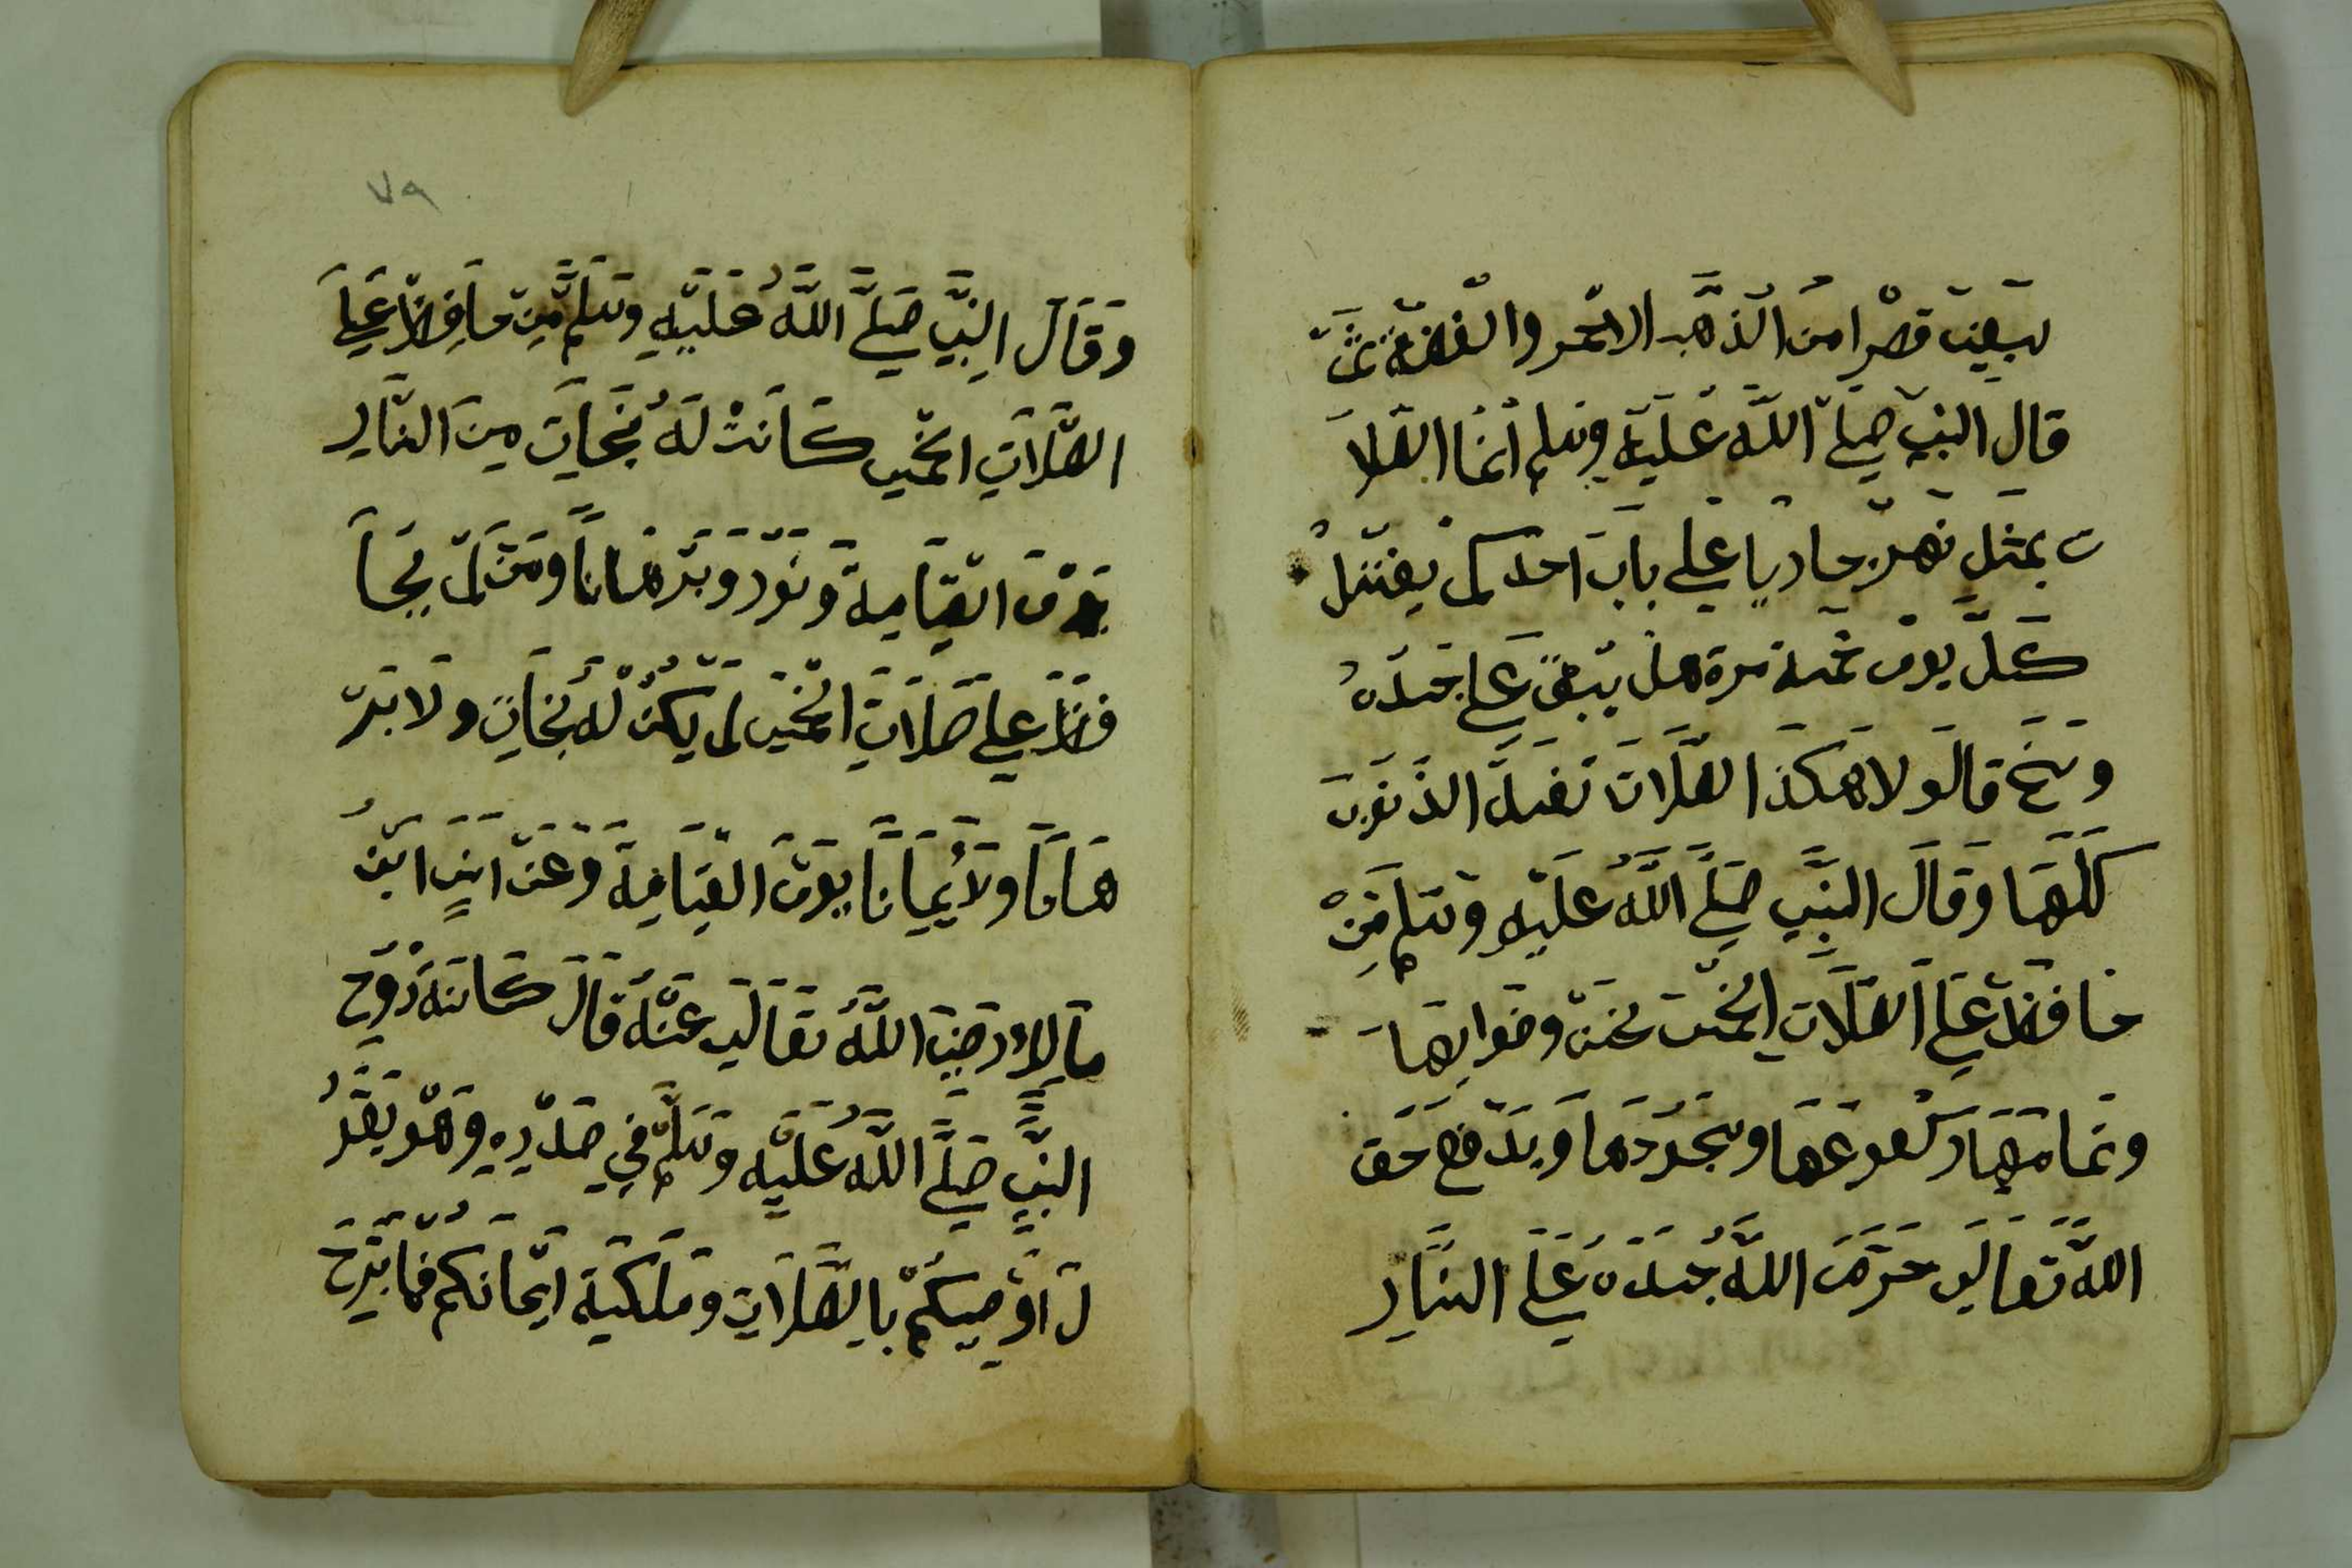 سبعين قصرا من الذهب الاحمر والفضة ثمّ
قال النبي صلّى اللّه عليه وسلم انما الصلا
ت بمثل نهر جاريا على باب احدكم يغتسل
كلّ يوم خمسة مرة هل يبقى على جسده
وسخ قالو لا هكذا الصلات تغسل الذنوب
كلّها وقال النبيّ صلّى اللّه عليه وسلم من
حافظ على الصلات الخمس بحسن وضوايها
وتمامها ركعوعها وسجودها ويدفع حق
اللّه تعالى حرّم اللّه جسده على النّار
٧٩
وقال النبيّ صلّى اللّه عليه وسلم من حافظ على
الصّلات الخمس كانت له نجات من النّار
يوم القيامة ونور وبرهانا ومن لم يحا
فظ على صلات الخمس لم يكن له نجات ولا بر
هانا ولا أيمانا يوم القيامة وعن انس ابن
مالك رضي اللّه تعالى عنه قال كانته روح
النبيّ صلّى اللّه عليه وسلّم في صدره وهو يقو
ل اوصيكم بالصّلات وملكية ايمانكم فما برح